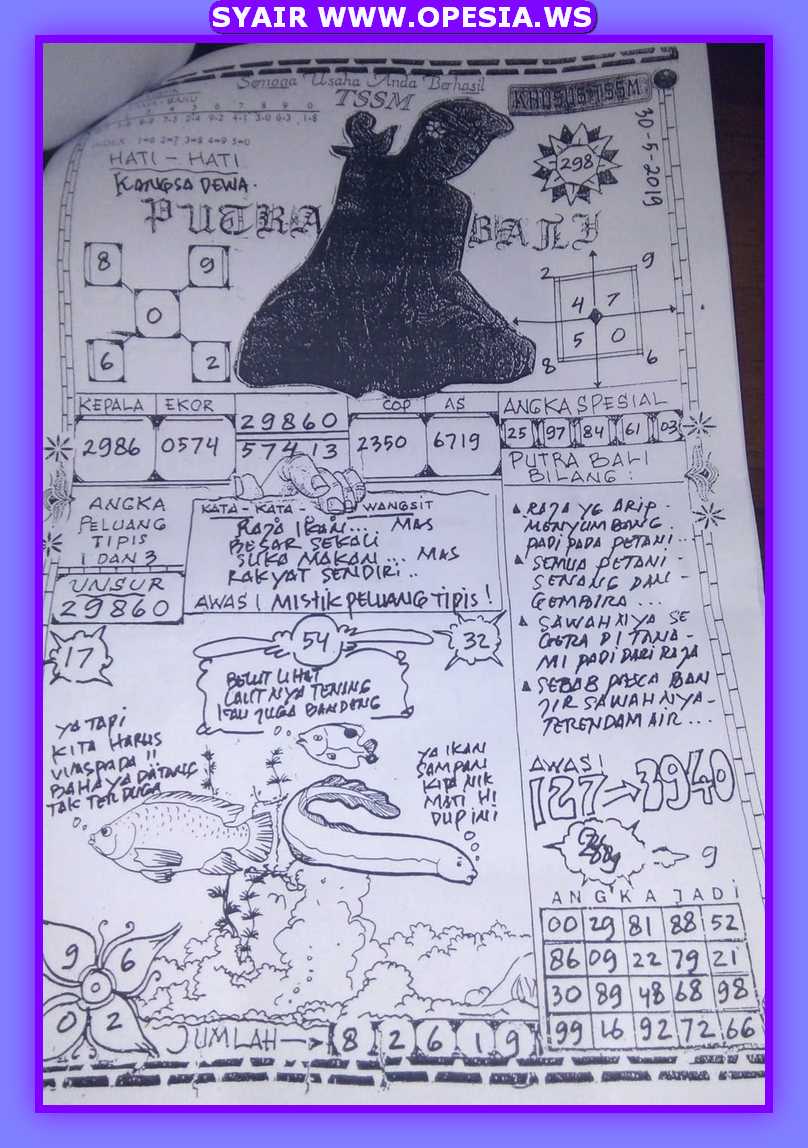 SYAIR WWW.OPESIA.WS
Semoga Usaha Anda Berhasil
TSSM
KHUSUS TSSM
30-5-2019
298
HATI - HATI
KANGSA DEWA.
PUTRA BALI
8
9
0
6
2
2
9
4
7
5
0
8
6
KEPALA
EKOR
29860
COP
AS
2986
0574
57413
2350
6719
ANGKA SPESIAL
25
97
84
61
03
PUTRA BALI
BILANG :
RAJA YG ARIP -
MENYUMBANG
PADI PADA PETANI...
SEMUA PETANI -
SENANG DAN -
GEMBIRA ...
SAWAHNYA SE
GERA DI TANA-
MI PADI DARI RAJA
SEBAB PASCA BAN
JIR SAWAHNYA-
TERENDAM AIR ...
ANGKA
PELUANG
TIPIS
1 DAN 3
UNSUR
29860
KATA - KATA - WANGSIT
RAJA IKAN... MAS
BESAR SEKALI
SUKA MAKAN ... MAS
RAKYAT SENDIRI ..
AWAS! MISTIK PELUANG TIPIS !
17
54
32
BELUT LIHAT
LAUTNYA TENING
IKAN JUGA BANDENG
YA TAPI
KITA HARUS
WASPADA !!
BAHAYA DATANG
TAK TERDUGA
YA IKAN
SAMPAN
KITA NIK
MATI HI
DUP INI
AWAS!
127 → 3940
9
ANGKA JADI
00 29 81 88 52
86 09 22 79 21
30 89 48 68 98
99 16 92 72 66
9
6
0
0
2
JUMLAH → 8 2 6 1 9